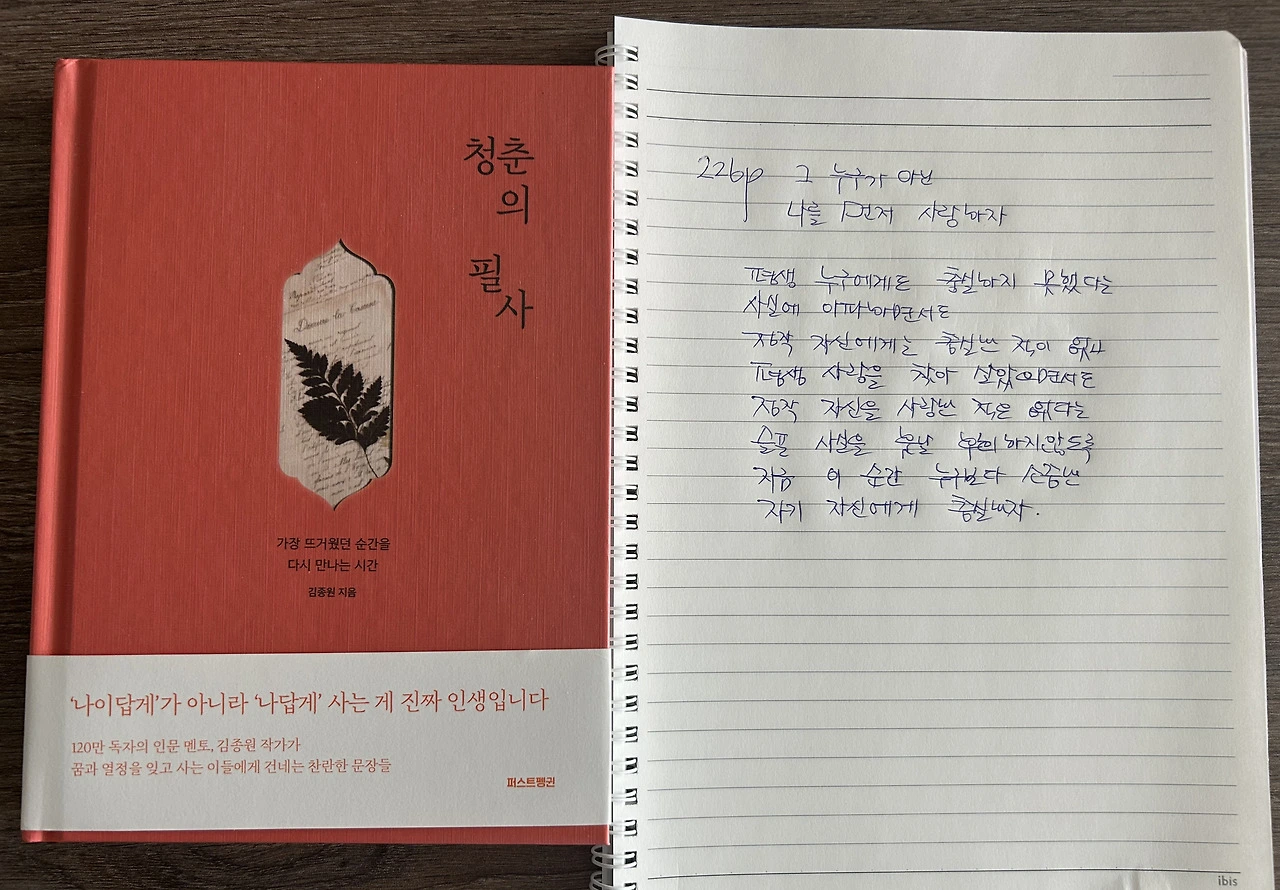 청춘
의
필
사
가장 뜨거웠던 순간을
다시 만나는 시간
김종원 지음
'나이답게'가 아니라 '나답게' 사는 게 진짜 인생입니다
120만 독자의 인문 멘토, 김종원 작가가
꿈과 열정을 잊고 사는 이들에게 건네는 찬란한 문장들
퍼스트펭귄
226p 그 누구가 아닌
나를 먼저 사랑하자
평생 누구에게도 충실하지 못했다는
사실에 아파하면서도
정작 자신에게는 충실한 적이 없고
평생 사랑을 찾아 살았으면서도
정작 자신을 사랑한 적은 없다는
슬픈 사실을 훗날 후회하지않도록
지금 이 순간 누구보다 소중한
자기 자신에게 충실하자.
ibis